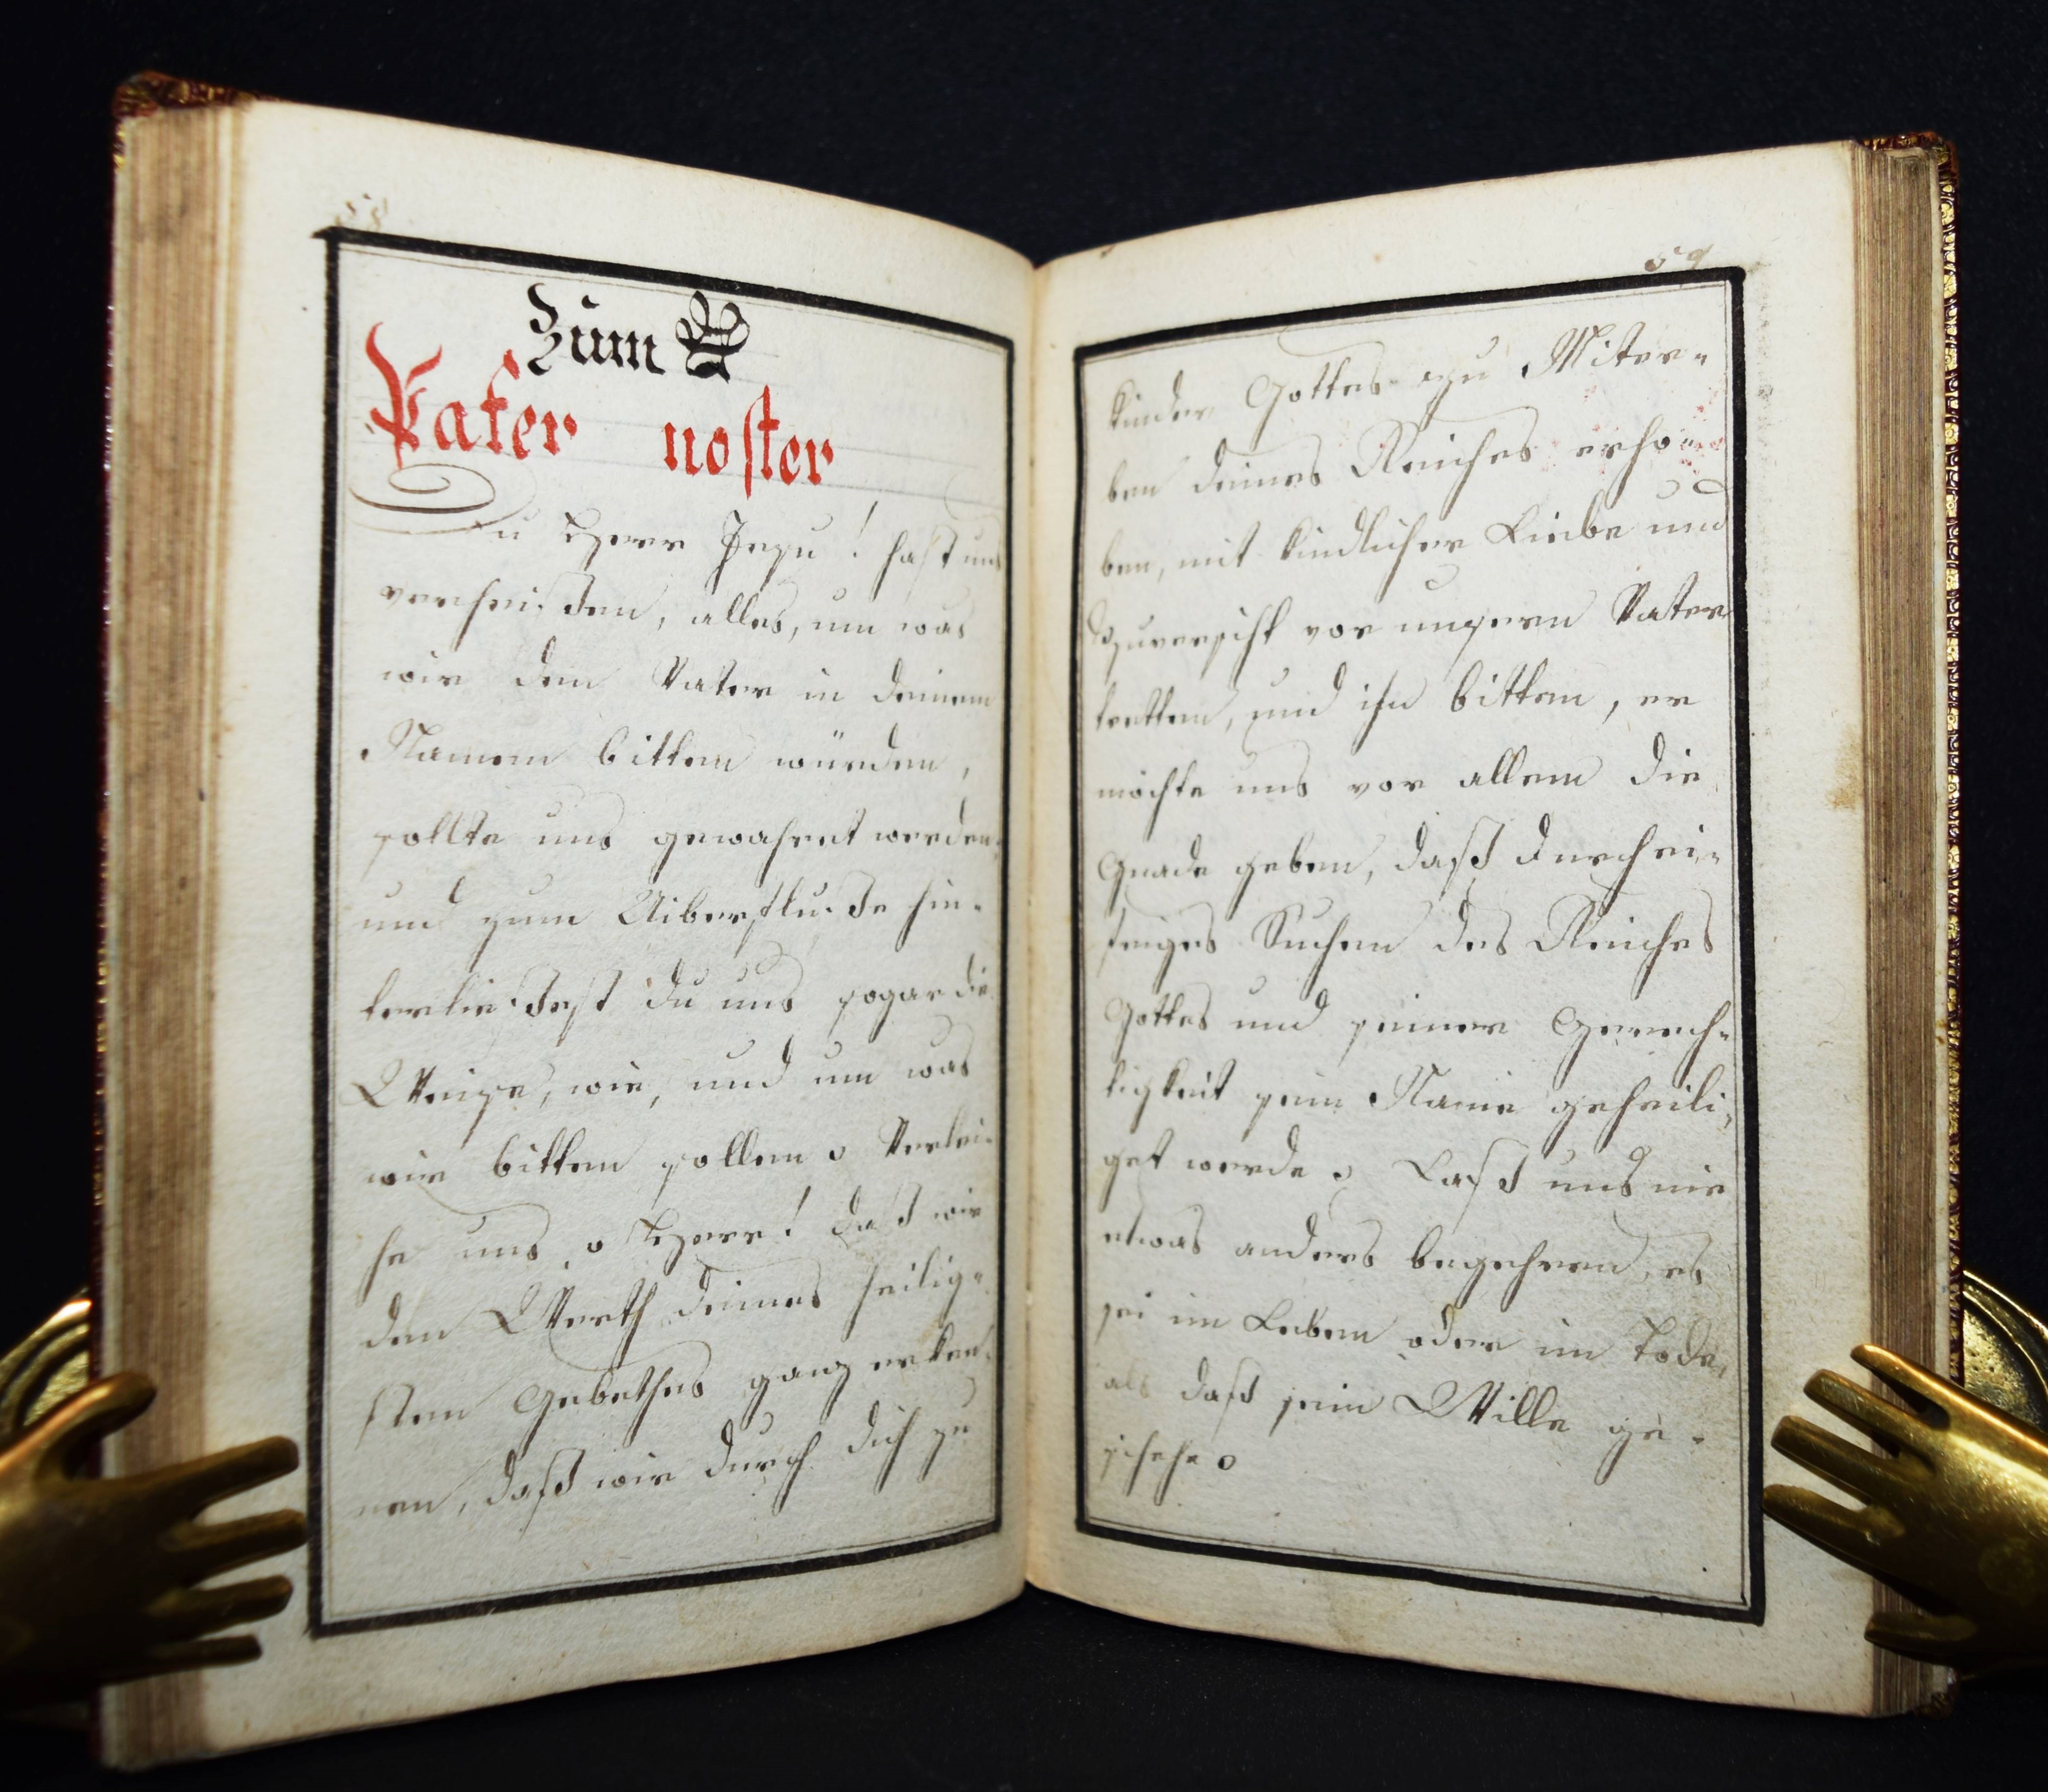 58
Zum
Pater noster
Du Herr Jesu! hast uns
verheißen, alles, um was
wir den Vater in deinem
Namen bitten würden,
sollte uns gewähret werden;
und zum Uiberfluße hin-
terließest du uns sogar die
Weise, wie, und um was
wir bitten sollen. Verlei-
he uns, o Herr! daß wir
den Werth deines heilig-
sten Gebethes ganz erken-
nen, daß wir durch dich zu
59
Kinder Gottes zu Miter-
ben deines Reiches erho-
ben, mit kindlicher Liebe und
Zuversicht vor unsern Vater
tretten, und ihn bitten, er
möchte uns vor allem die
Gnade geben, daß durch ei-
friges Suchen des Reiches
Gottes und seiner Gerech-
tigkeit sein Name geheili-
get werde. Laß uns nie
etwas anders begehren, es
sei im Leben oder im Tode,
als daß sein Wille ge-
schehe.